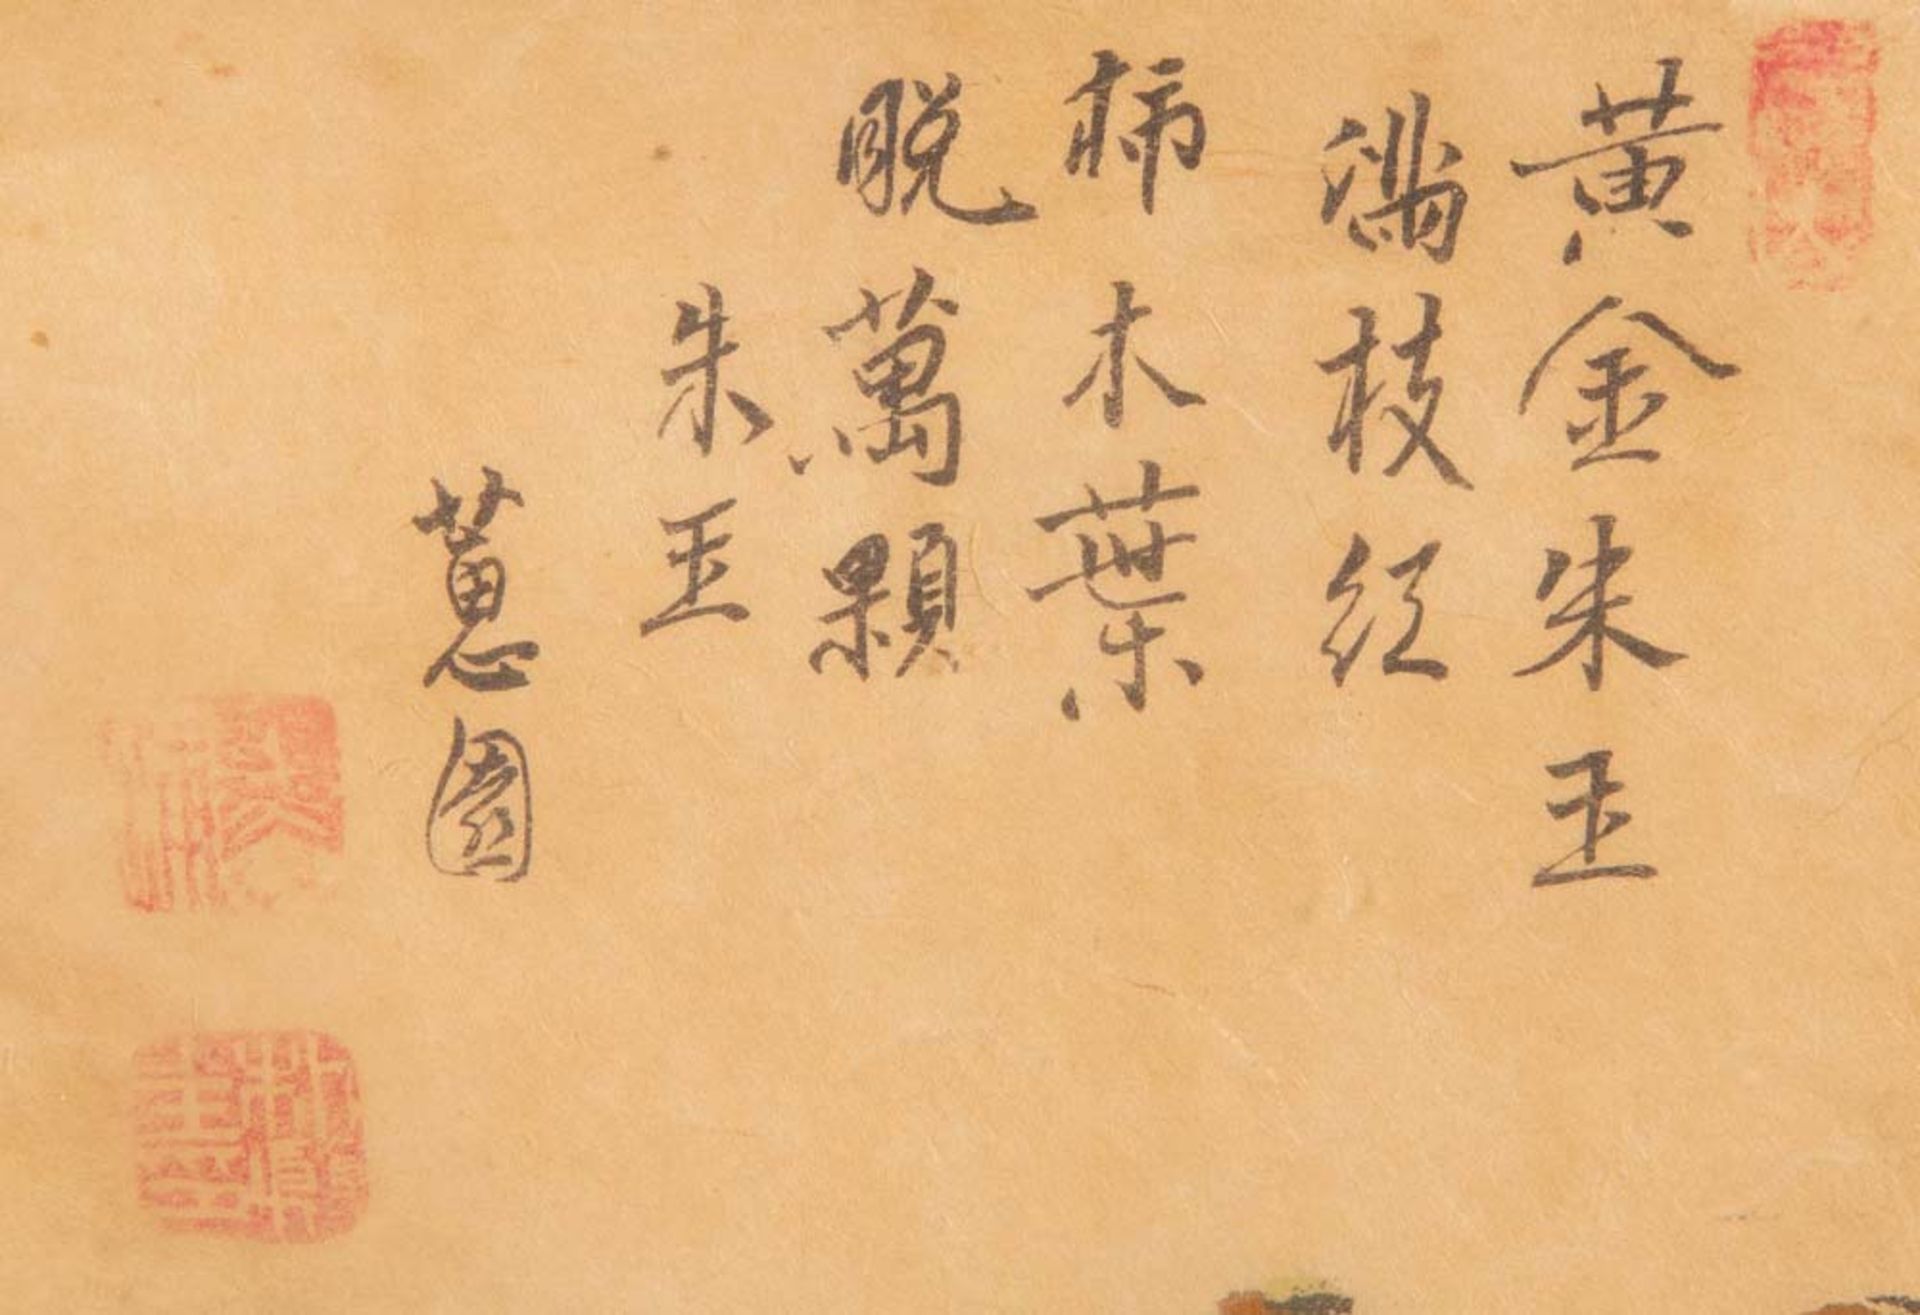 黄金朱玉
滿枝紅
柿木葉
脫萬顆
朱玉
蕙園